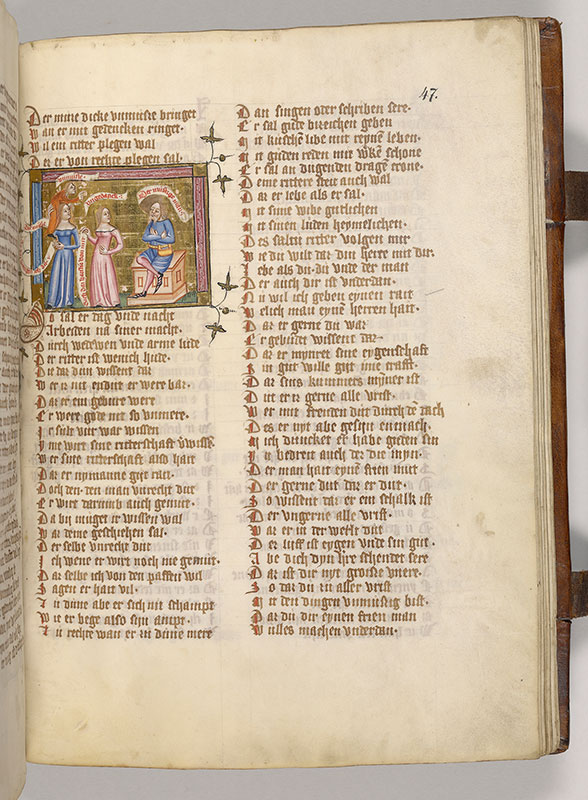 47.
Der mute dicke vnmuse bringet
Wan er mit gedencken ringet
Wil ein ritter plegen wal
Der er von rechte plegen sal.
Er sal er dag vnde nacht
Arbeiden na siner macht.
Durch wedewen vnde arme lude
Der ritter ist wenich hude.
Die dar dun wissent dar
Wer is nit endut er were bar.
Dar er ein gebure were
Er were gode nit so vnmere.
Ir sult vur war wissen
Yme wirt sine ritterschaft
Wer sine ritterschaft also hait
Dar er nymanne git rait.
Doch den den man vnrecht dut
Er wirt darumb auch gemut.
Da bij muget ir wissen wal
War deme geschiehen sal.
Der selbe vnrecht dut
Ich wene er wirt noch me gemut.
Dar selbe ich von den paffen wil
Sagen er hait vil.
zu dune abe er sich nit schampt
Wie er bege also sijn ampt.
zu rechte wan er zu dune mere
Dan singen oder schriben sere.
Er sal gude bilde geben
Mit kuschem libe mit reyne leben.
Mit guden reden mit schone
Er sal an dugenden dragen crone.
Deme rittere stet auch wal
Dar er lebe als er sal.
Mit sime wibe gutlichen
Mit sinen luden heymelichen.
Des saltu ritter volgen mir
Wie du wilt dar din herre mit dir.
Lebe als du du vnde der man
Der auch dir ist vnderdan.
Nu wil ich geben eynen rait
Welich man eynen herren hait.
Dar er gerne du war
Er gebudet wissent dar
Dar er mynret sine eygenschaft
Sin gut wille git ime craft.
Dar sins kummers myner ist
Dut er is gerne alle vrist.
Wer mit freuden dut durch de dach
Des er nyt abe gesin enmach.
Mich duncket er habe guden sin
In bedren auch der die myn
Der man hait eynen frien mut
Der gerne dut dar er dut.
So wissent dar er ein schalk ist
Der vngerne alle vrist.
War er in der werlt dut
Der lutse ist eygen vnde sin gut.
Abe dich dyn hre schendet sere
Dar ist dir nyt groisse vnere.
So dar du zu aller vrist
Mit den dingen vnmusig bist.
Dar du dir eynen frien man
Wulles machen vnderdan.